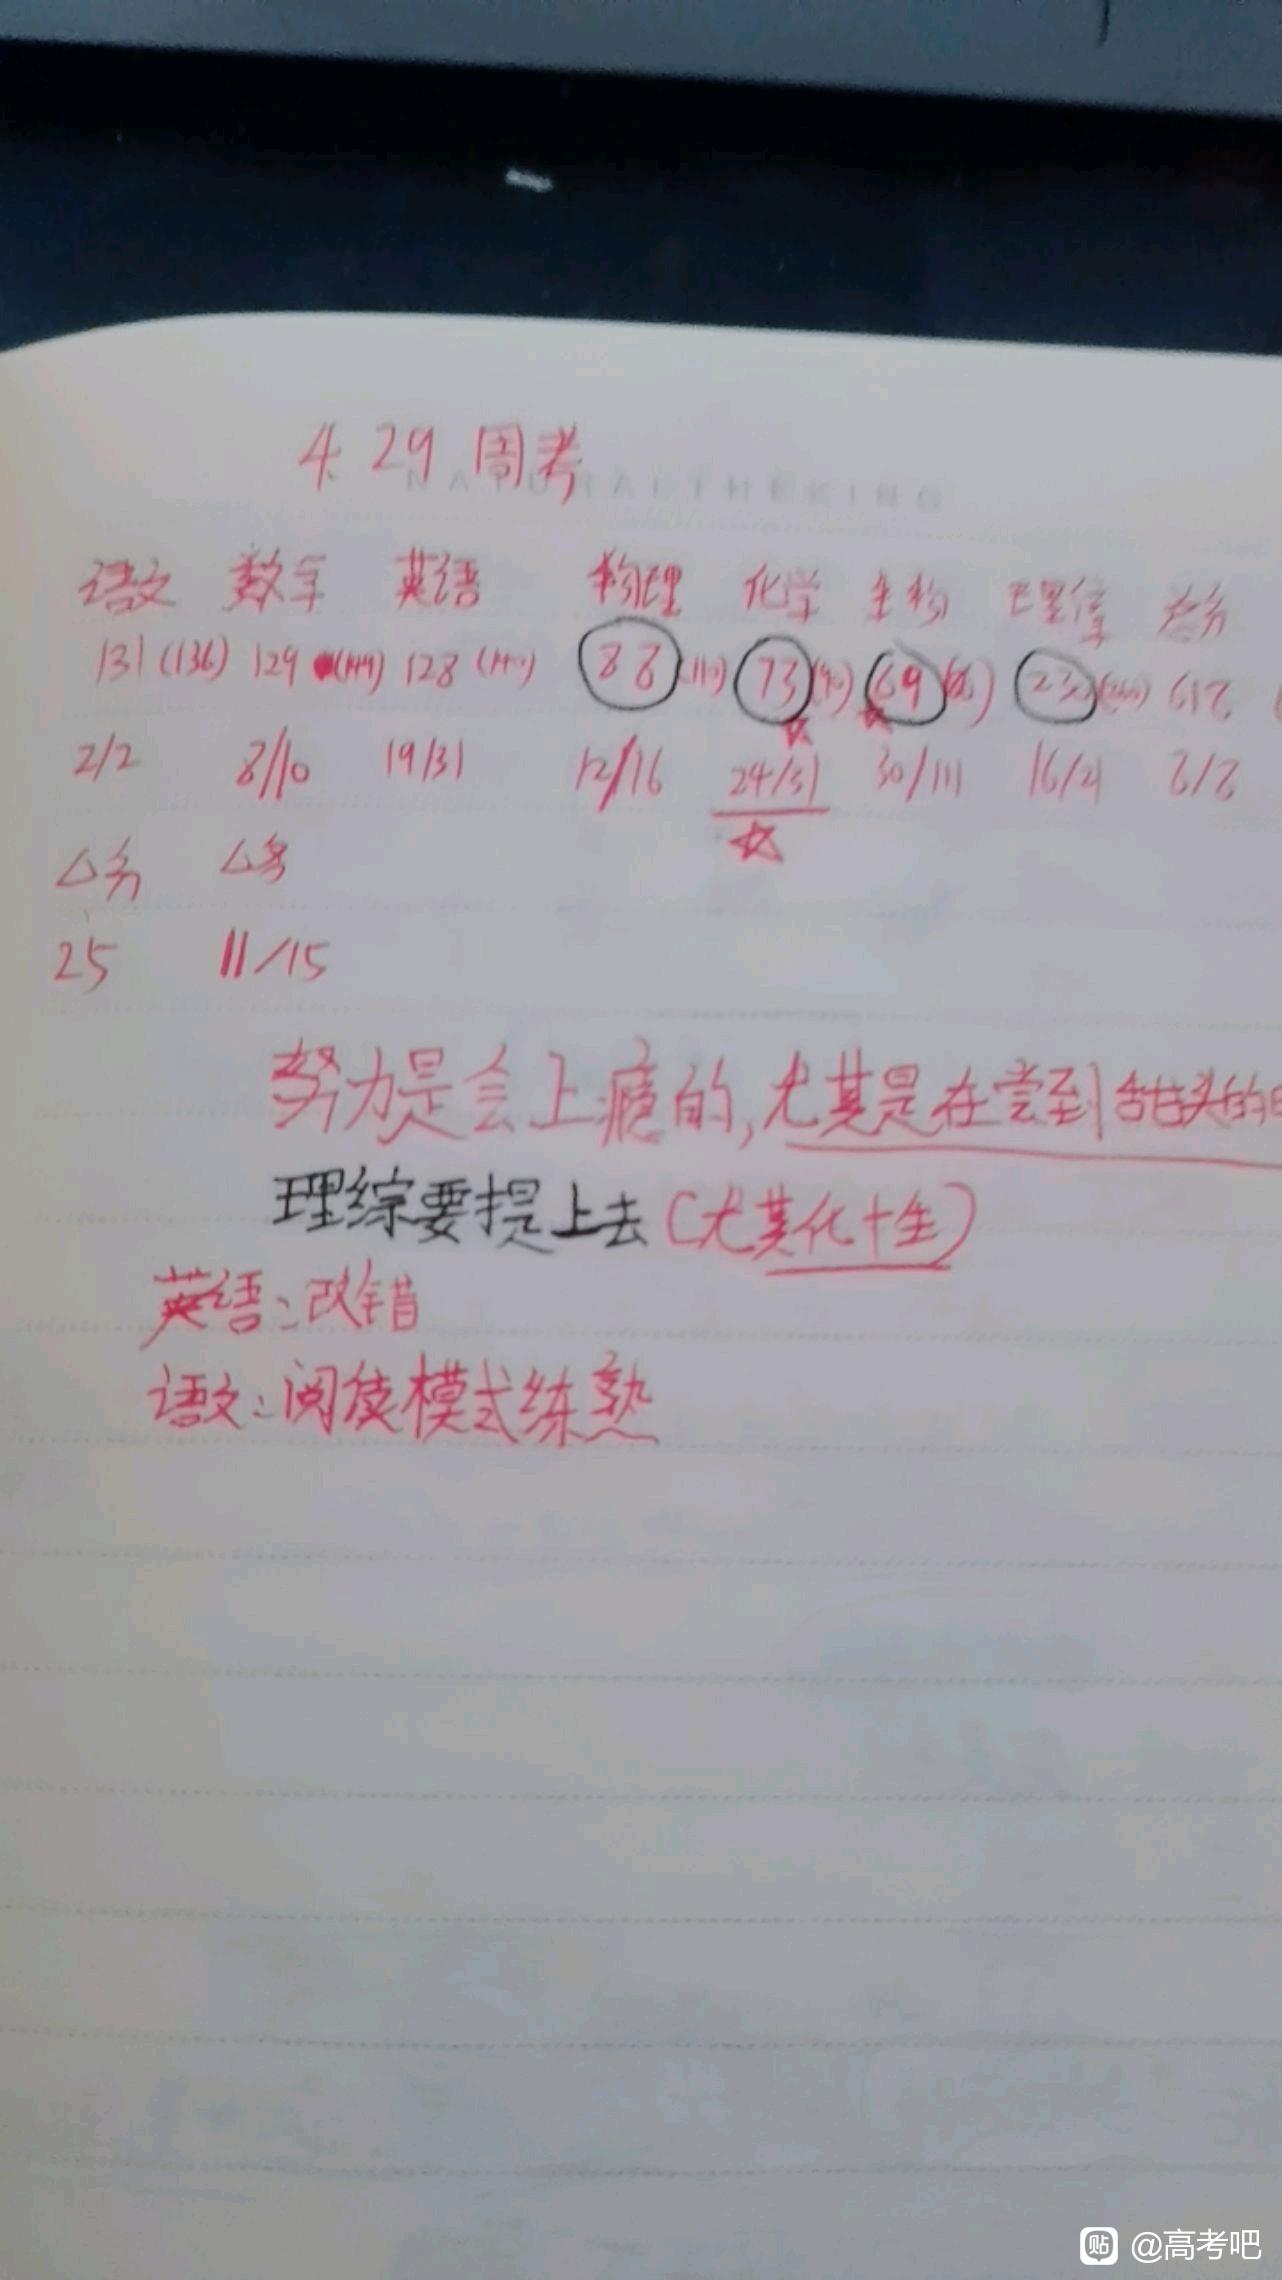 4.29 周考
NATURALTHEKING
语文 数学 英语 物理 化学 生物 理综 总分
131 (136) 129 (144) 128 (140) 88 (110) 73 (90) 69 23 618
2/2 8/10 19/31 12/16 24/31 30/111 16/21 6/6
△分 △名
25 11/15
努力是会上瘾的,尤其是在尝到甜头的
理综要提上去(尤其化+生)
英语:改错
语文:阅读模式练熟
贴 @高考吧